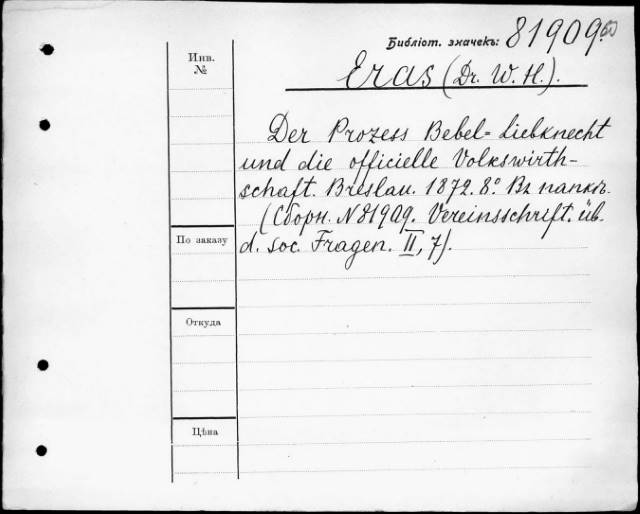 Библіот. значекъ: 81909.60
Инв. №
Eras (Dr. W. H.).
Der Prozess Bebel=Liebknecht
und die officielle Volkswirth-
schaft. Breslau. 1872. 8º. Въ папкѣ.
(Сборн. N 81909. Vereinsschrift. üb.
По заказу
d. soc. Fragen. II, 7).
Откуда
Цѣна